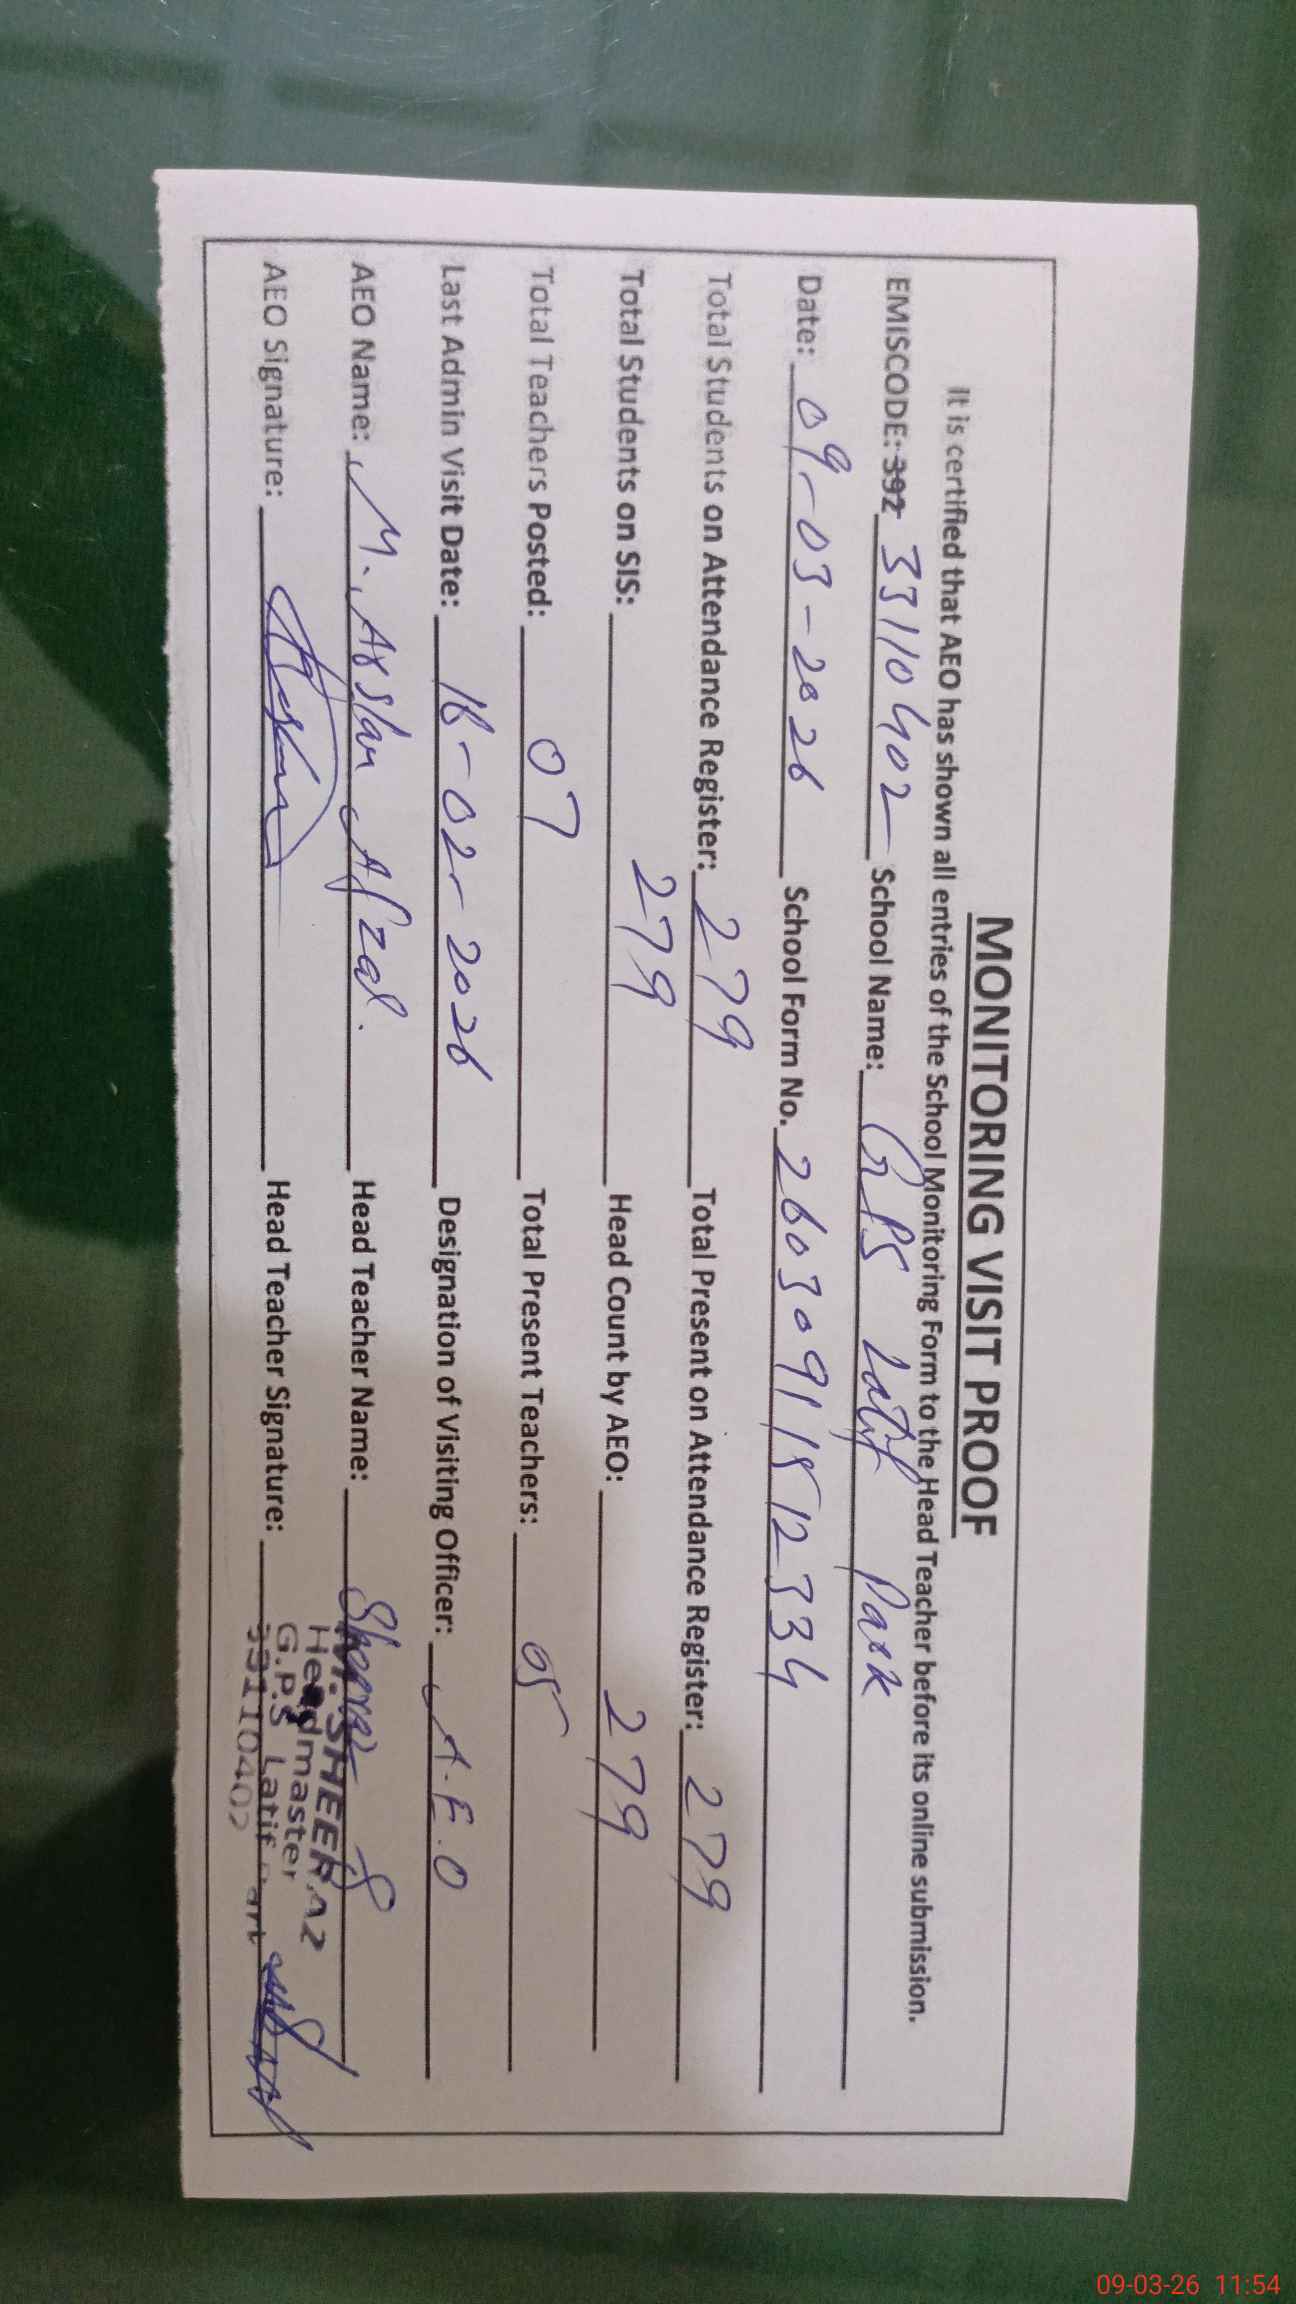 MONITORING VISIT PROOF
It is certified that AEO has shown all entries of the School Monitoring Form to the Head Teacher before its online submission.
EMISCODE: 392 33110402 School Name: GPS Latif Park
Date: 09-03-2026 School Form No. 26030911512334
Total Students on Attendance Register: 279 Total Present on Attendance Register: 279
Total Students on SIS: 279 Head Count by AEO: 279
Total Teachers Posted: 07 Total Present Teachers: 05
Last Admin Visit Date: 16-02-2026 Designation of Visiting Officer: A.E.O
AEO Name: M. Arslan Afzal. Head Teacher Name:
M. SHEERAZ
Headmaster
AEO Signature: Head Teacher Signature:
G.P.S Latif Park
33110402
09-03-26 11:54